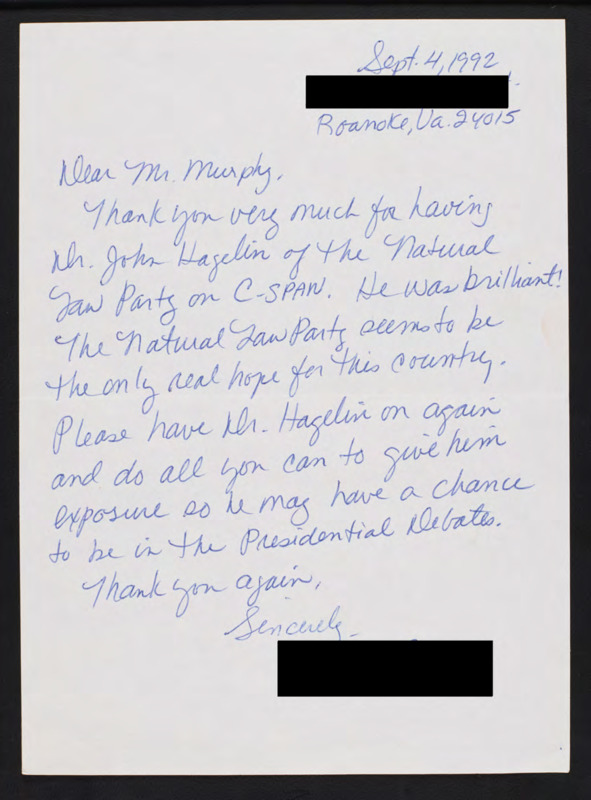 Sept. 4, 1992
Roanoke, Va. 24015
Dear Mr. Murphy,
Thank you very much for having
Dr. John Hagelin of the Natural
Law Party on C-SPAN. He was brilliant!
The Natural Law Party seems to be
the only real hope for this country.
Please have Dr. Hagelin on again
and do all you can to give him
exposure so he may have a chance
to be in the Presidential Debates.
Thank you again,
Sincerely -